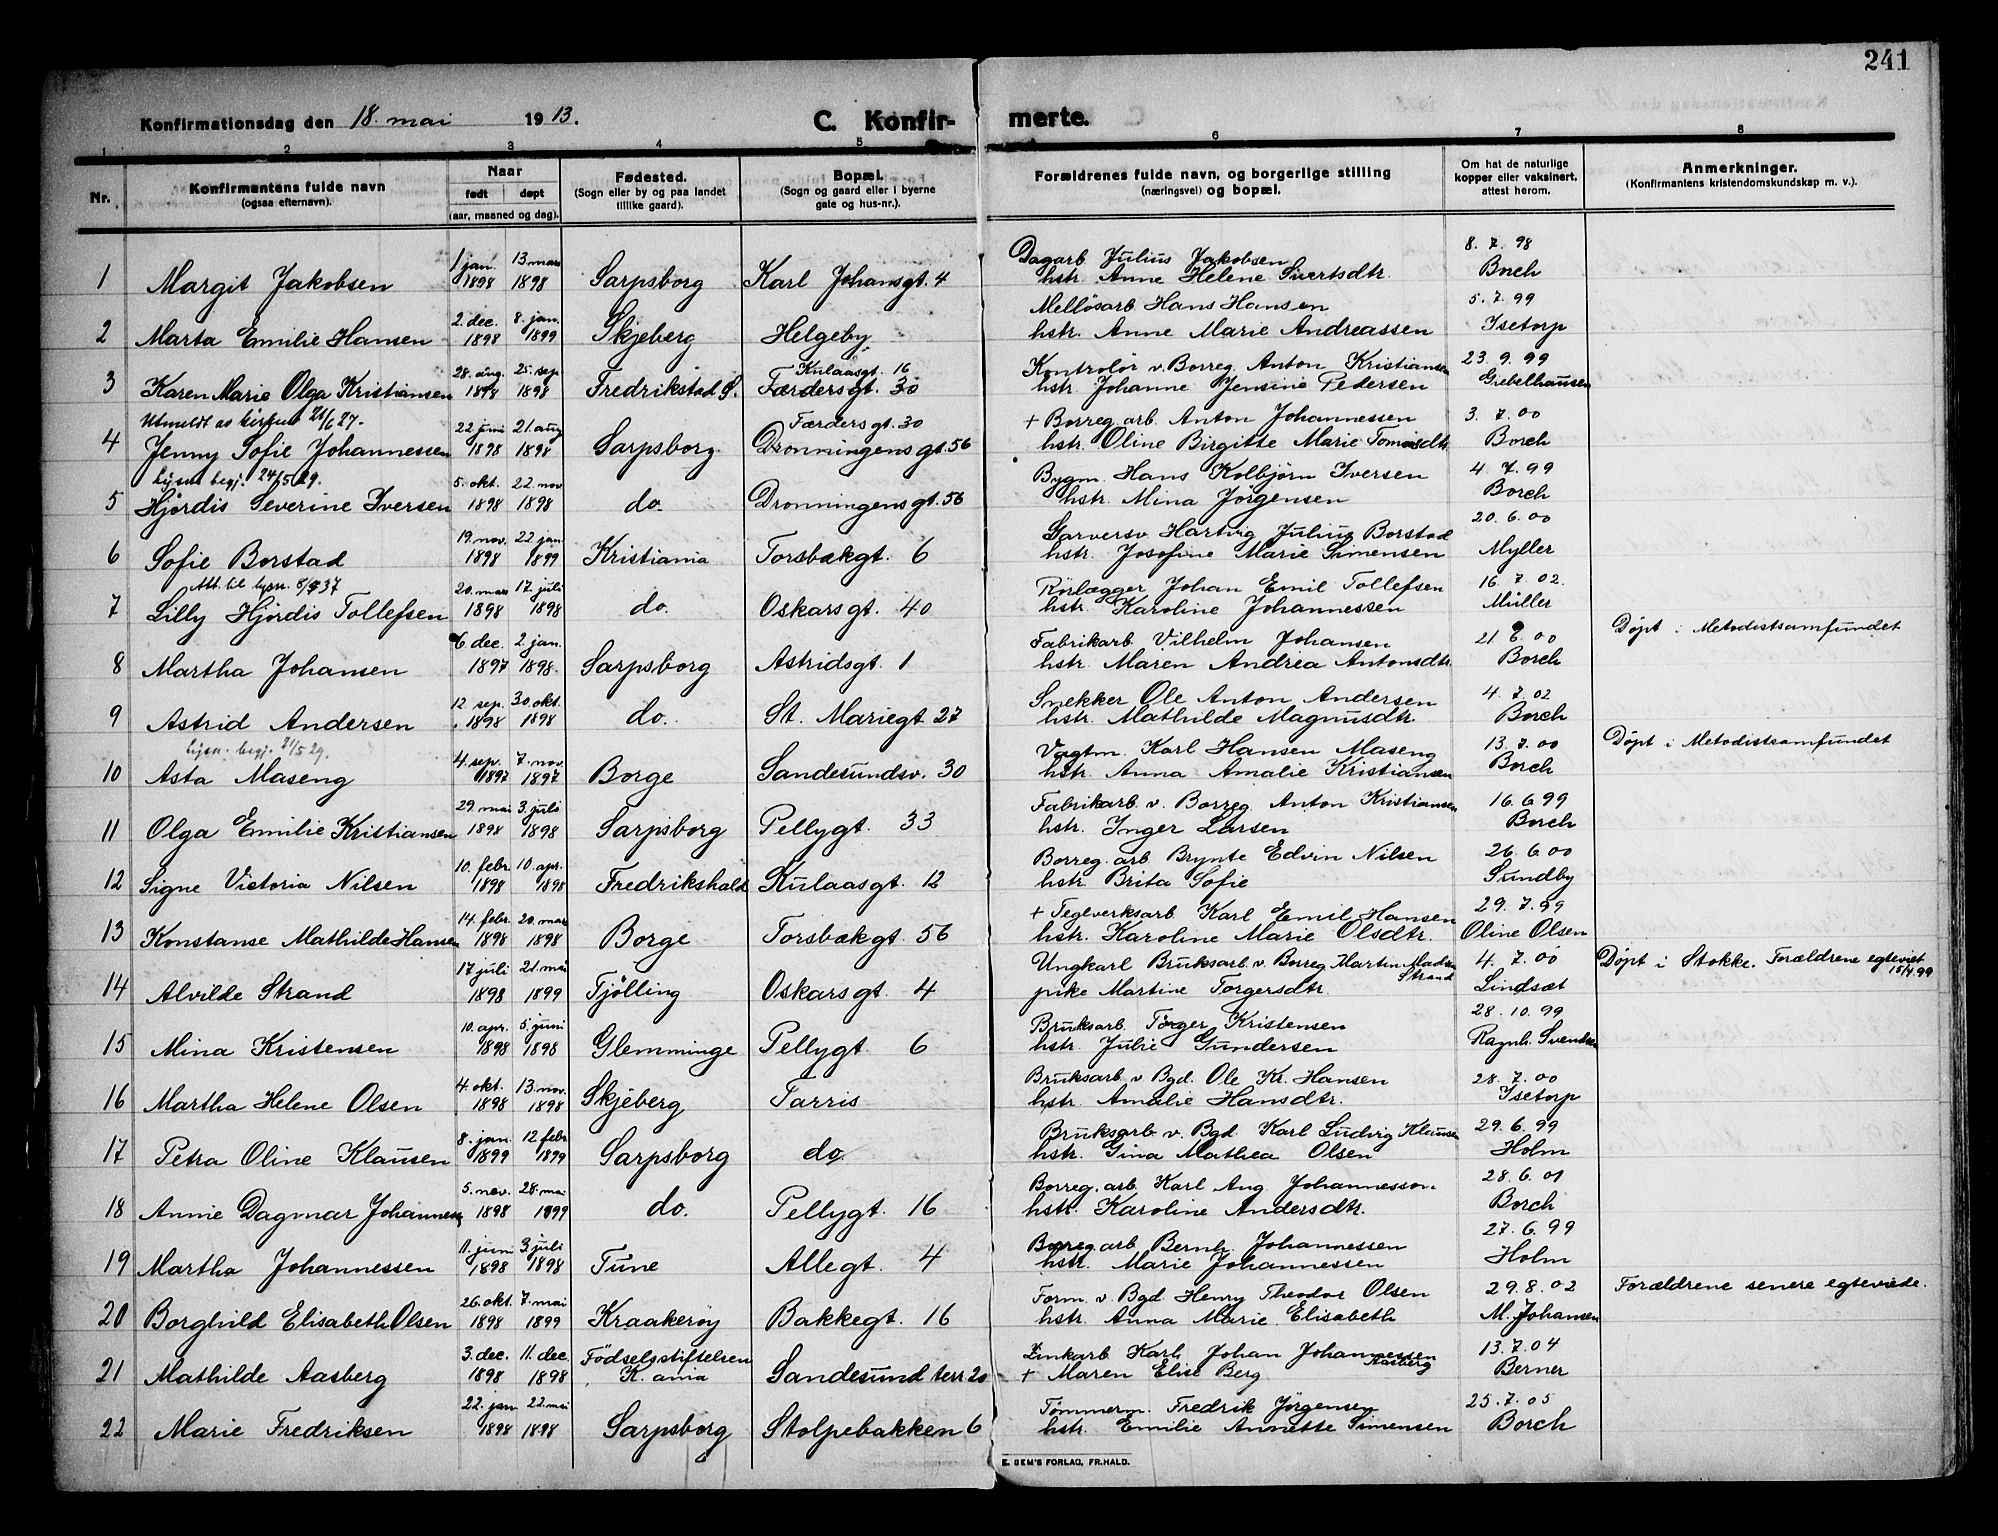 241
Konfirmationsdag den 18. mai 1913.
C. Konfir- merte.
1 2 3 4 5 6 7 8
Nr. Konfirmantens fulde navn (ogsaa efternavn). Naar født døpt (aar, maaned og dag). Fødested. (Sogn eller by og paa landet tillike gaard). Bopæl. (Sogn og gaard eller i byerne gate og hus-nr.). Forældrenes fulde navn, og borgerlige stilling (næringsvei) og bopæl. Om hat de naturlige kopper eller vaksinert, attest herom. Anmerkninger. (Konfirmantens kristendomskundskap m. v.).
1 jan. 13 mars Dagarb Julius Jakobsen 8. 7. 98
1 Margit Jakobsen 1898 1898 Sarpsborg Karl Johansgt. 4 hstr. Anne Helene Sivertsdtr. Borch
2. dec. 8. jan. Melløsarb Hans Hansen 5. 7. 99
2 Marta Emilie Hansen 1898 1899 Skjeberg Helgeby hstr. Anne Marie Andreassen Isetorp
28. aug. 25. sep Kulaasgt. 16 Kontrolør v. Borreg. Anton Kristiansen 23. 9. 99
3 Karen Marie Olga Kristiansen 1898 1898 Fredrikstad Færdersgt. 30 hstr. Johanne Jensine Pedersen Giebelhausen
Utmeldt av kirken 21/6 27. 22 juni 21. aug Færdersgt. 30 + Borreg. arb. Anton Johannessen 3. 7. 00
4 Jenny Sofie Johannessen 1898 1898 Sarpsborg Dronningens gt. 56 hstr. Oline Birgitte Marie Tomasdtr. Borch
lysn. begj. 24/5 29. 5. okt. 22 nov Bygm. Hans Kolbjørn Iversen 4. 7. 99
5 Hjørdis Severine Iversen 1898 1898 do. Dronningens gt. 56 hstr. Mina Jørgensen Borch
19. nov. 22 jan. Garversv. Hartvig Julius Borstad 20. 6. 00
6 Sofie Borstad 1898 1899 Kristiania Torsbækgt. 6 hstr. Josefine Marie Simensen Myller
Att. til lysn. 20. mars 17. juli Rørlægger Johan Emil Tollefsen 16. 7. 02.
7 Lilly Hjørdis Tollefsen 1898 1898 do. Oskars gt. 40 hstr. Karoline Johannessen Müller
6 dec. 2 jan. Fabrikarb. Vilhelm Johansen 21 6. 00 Døpt i Metodistsamfundet
8 Martha Johansen 1897 1898. Sarpsborg Astridsgt. 1 hstr. Maren Andrea Antonsdtr. Borch
12 sep. 30. okt. Snekker Ole Anton Andersen 4. 7. 02
9 Astrid Andersen 1898 1898 do. St. Mariegt. 27 hstr. Mathilde Magnusdtr. Borch
lysn. begj. 21/5 29. 4. sep. 7. nov. Vagtm. Karl Hansen Maseng 13. 7. 00 Døpt i Metodistsamfundet
10 Asta Maseng 1897 1897 Borge Sandesundsv. 30 hstr. Anna Amalie Kristiansen Borch
29. mai 3. juli Fabrikarb v. Borreg. Anton Kristiansen 16. 6. 99
11 Olga Emilie Kristiansen 1898 1898 Sarpsborg Pellygt. 33 hstr. Inger Larsen Borch
10. febr. 10. apr. Borreg. arb Brynte Edvin Nilsen 26. 6. 00
12 Signe Victoria Nilsen 1898 1898 Fredrikshald Kulaasgt. 12 hstr. Brita Sofie Sundby
14. febr. 20. mars + Teglverksarb Karl Emil Hansen 29. 7. 99
13 Konstanse Mathilde Hansen 1898 1898 Borge Torsbækgt. 56 hstr. Karoline Marie Olsdtr. Oline Olsen
17 juli 21. mai Ungkarl Bruksarb. v. Borreg. Martin Madsen Strand 4. 7. 00 Døpt i Stokke. Forældrene egteviet 15/4 99
14 Alvilde Strand 1898 1899 Tjølling Oskars gt. 4 pike Martine Torgersdtr. Lindsæt
10. apr. 5. juni Bruksarb. Torger Kristensen 28. 10. 99
15 Mina Kristensen 1898 1898 Glemminge Pellygt. 6 hstr. Julie Gundersen Ragnh. Svendsen
4. okt. 13. nov. Bruksarb v. Bgd. Ole Kr. Hansen 28. 7. 00
16 Martha Helene Olsen 1898 1898 Skjeberg Tarris hstr. Amalie Hansdtr. Isetorp
8. jan. 12 febr. Bruksarb. v. Bgd. Karl Ludvig Klausen 29. 6. 99
17 Petra Oline Klausen 1899 1899 Sarpsborg do. hstr. Gina Mathea Olsen Holm
5. nov. 28. mai Borreg. arb Karl Aug. Johannesson. 28. 6. 01
18 Annie Dagmar Johannessen 1898 1899 do. Pellygt. 16 hstr. Karoline Andersdtr. Borch
11. juni 3. juli Borreg. arb Bernh. Johannessen 27. 6. 99
19 Martha Johannessen 1898 1898 Tune Allegt. 4 hstr. Marie Johannessen Holm
26. okt. 7. mai Form. v. Bgd. Henry Theodor Olsen 29. 8. 02 Forældrene senere egteviede.
20 Borghild Elisabeth Olsen 1898 1899 Kraakerøy Bakkegt. 16 hstr. Anna Marie Elisabeth M. Johansen
3. dec. 11. dec. Fødselsstiftelsen Zinkarb Karl Johan Johannessen Aasberg 13. 7. 04
21 Mathilde Aasberg 1898 1898 K.ania Sandesund terr 20 + Maren Elise Berg Berner
22. jan 22 mai Tømmerm. Fredrik Jørgensen 25. 7. 05
22 Marie Fredriksen 1898 1898 Sarpsborg Stolpebakken 6 hstr. Emilie Annette Simensen Borch
E. SEM'S FORLAG, FR.HALD.